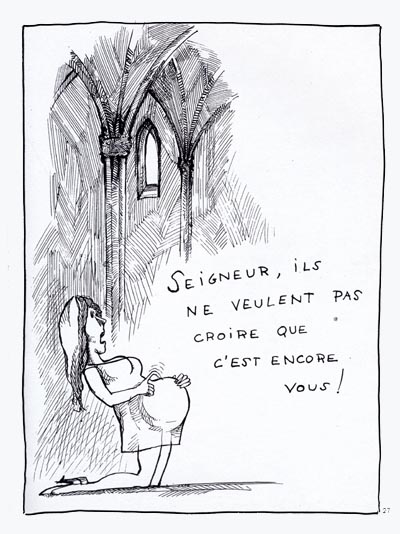 SEIGNEUR, ILS
NE VEULENT PAS
CROIRE QUE
C'EST ENCORE
VOUS!
27